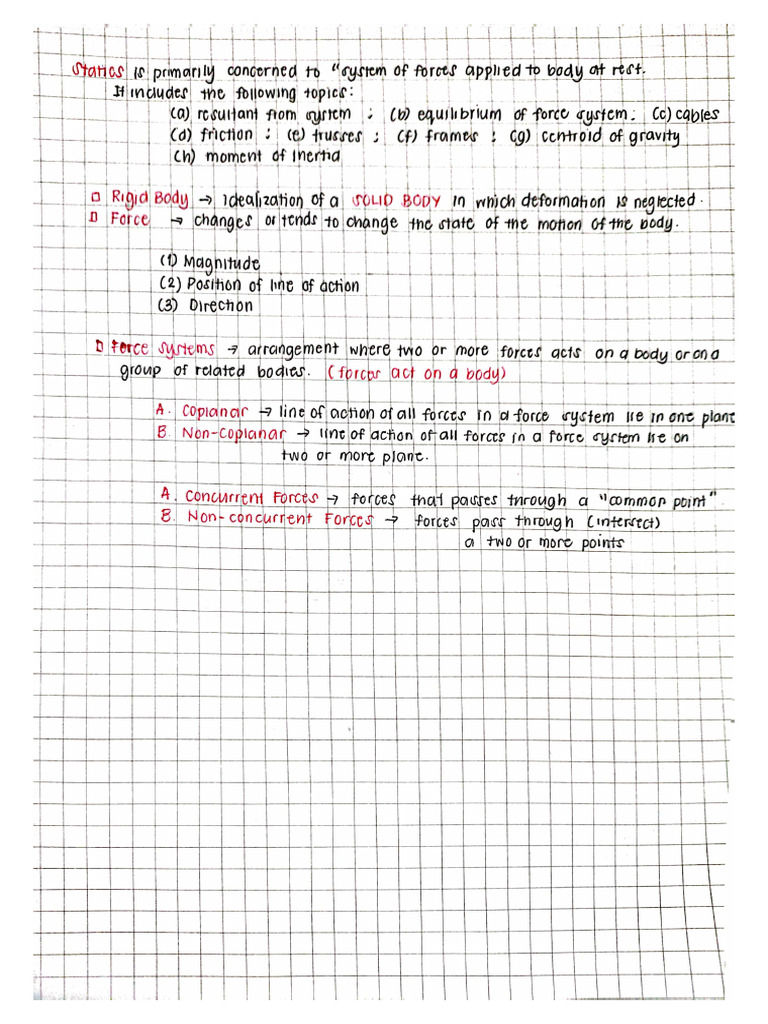 Statics is primarily concerned to "system of forces applied to body at rest.
It includes the following topics:
(a) resultant from system ; (b) equilibrium of force system; (c) cables
(d) friction ; (e) trusses ; (f) frames ; (g) centroid of gravity
(h) moment of inertia
Rigid Body → Idealization of a SOLID BODY in which deformation is neglected.
Force → changes or tends to change the state of the motion of the body.
(1) Magnitude
(2) Position of line of action
(3) Direction
Force Systems → arrangement where two or more forces acts on a body or on a
group of related bodies. (forces act on a body)
A. Coplanar → line of action of all forces in a force system lie in one plane
B. Non-Coplanar → line of action of all forces in a force system lie on
two or more plane.
A. Concurrent Forces → forces that passes through a "common point"
B. Non-concurrent Forces → forces pass through (intersect)
a two or more points